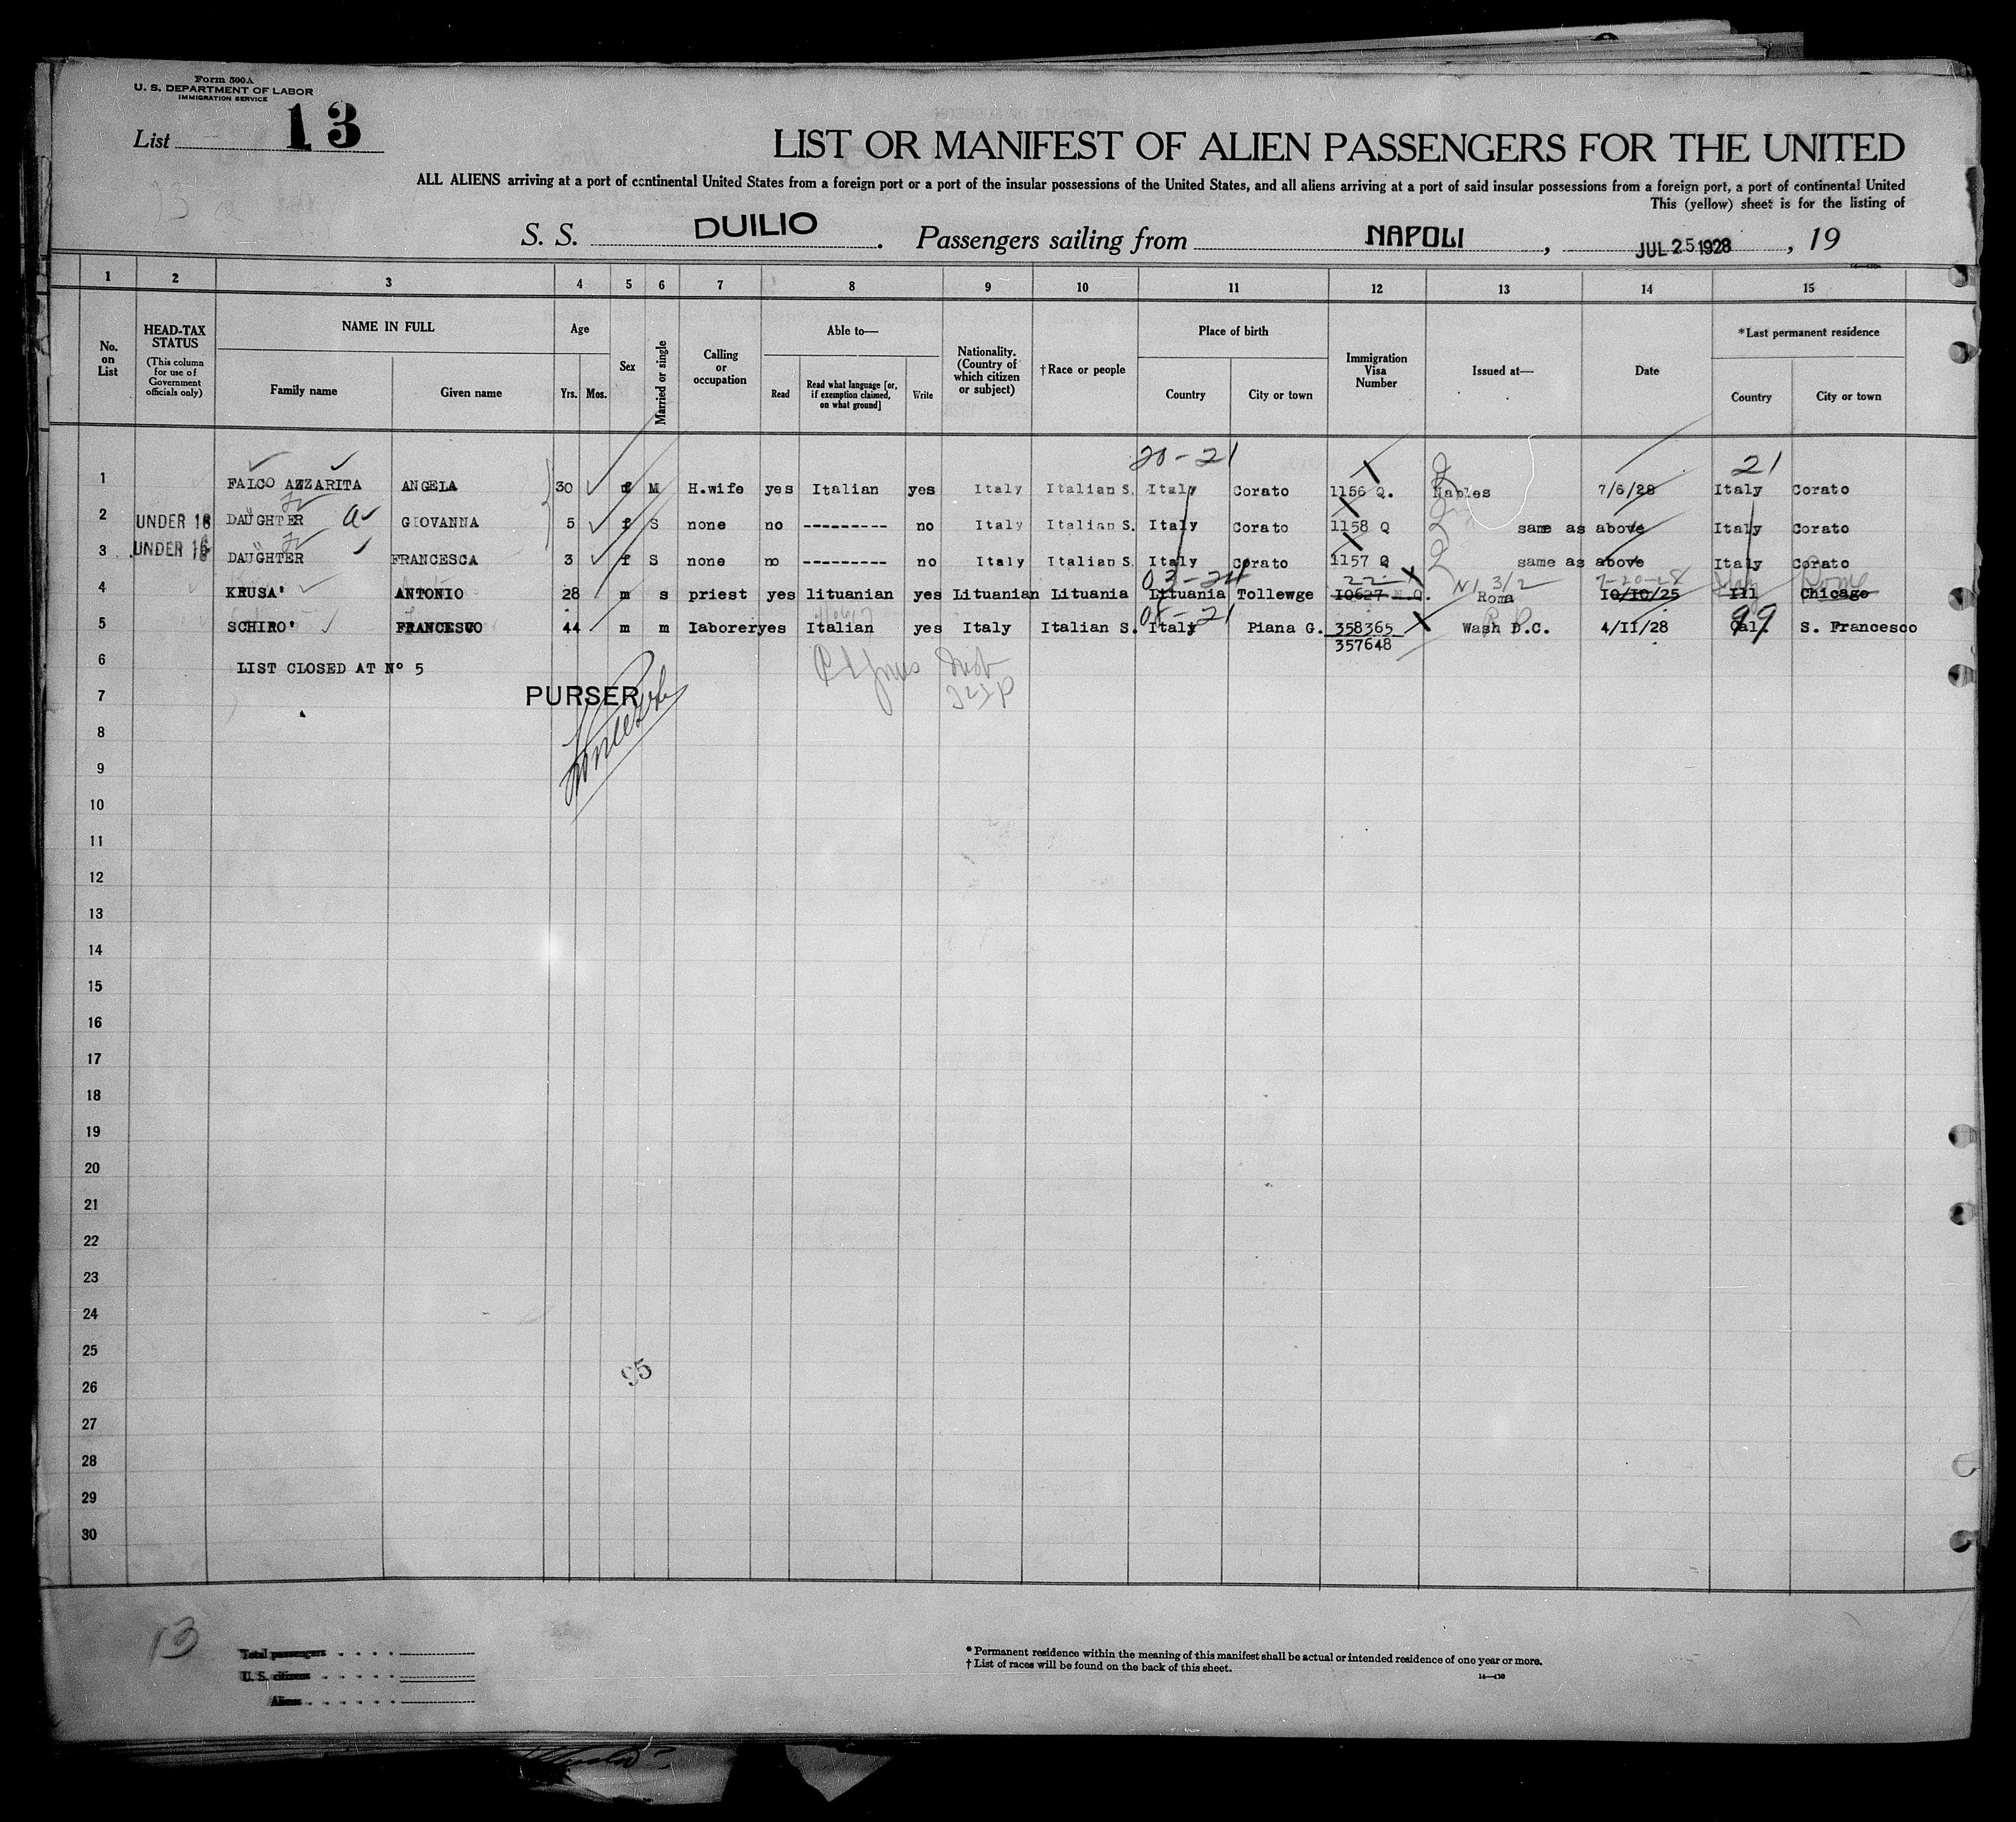 Form 500A
U. S. DEPARTMENT OF LABOR
IMMIGRATION SERVICE
List 13
LIST OR MANIFEST OF ALIEN PASSENGERS FOR THE UNITED
ALL ALIENS arriving at a port of continental United States from a foreign port or a port of the insular possessions of the United States, and all aliens arriving at a port of said insular possessions from a foreign port, a port of continental United
This (yellow) sheet is for the listing of
S. S. DUILIO. Passengers sailing from NAPOLI, JUL 25 1928, 19
1 2 3 4 5 6 7 8 9 10 11 12 13 14 15
No. on List
HEAD-TAX STATUS
(This column for use of Government officials only)
NAME IN FULL
Family name
Given name
Age
Yrs. Mos.
Sex
Married or single
Calling or occupation
Able to—
Read
Read what language [or, if exemption claimed, on what ground]
Write
Nationality. (Country of which citizen or subject)
†Race or people
Place of birth
Country
City or town
Immigration Visa Number
Issued at—
Date
*Last permanent residence
Country
City or town
20-21 21
1 FALCO AZZARITA ANGELA 30 f M H.wife yes Italian yes Italy Italian S. Italy Corato 1156 Q. Naples 7/6/28 Italy Corato
2 UNDER 16 DAUGHTER GIOVANNA 5 f S none no --------- no Italy Italian S. Italy Corato 1158 Q same as above Italy Corato
3 UNDER 16 DAUGHTER FRANCESCA 3 f S none no --------- no Italy Italian S. Italy Corato 1157 Q same as above Italy Corato
03-24 7-20-28 Rome
4 KRUSA' ANTONIO 28 m s priest yes lituanian yes Lituanian Lituania Lituania Tollewge 10627 N.Q. Roma 10/10/25 Ill Chicago
08-21 99
5 SCHIRO' FRANCESCO 44 m m Iaborer yes Italian yes Italy Italian S. Italy Piana G. 358365 Wash D.C. 4/11/28 Cal. S. Francesco
357648
6 LIST CLOSED AT Nº 5
7 PURSER
8
9
10
11
12
13
14
15
16
17
18
19
20
21
22
23
24
25
95
26
27
28
29
30
13
Total passengers
U. S. citizens
Aliens
* Permanent residence within the meaning of this manifest shall be actual or intended residence of one year or more.
† List of races will be found on the back of this sheet.
14—430